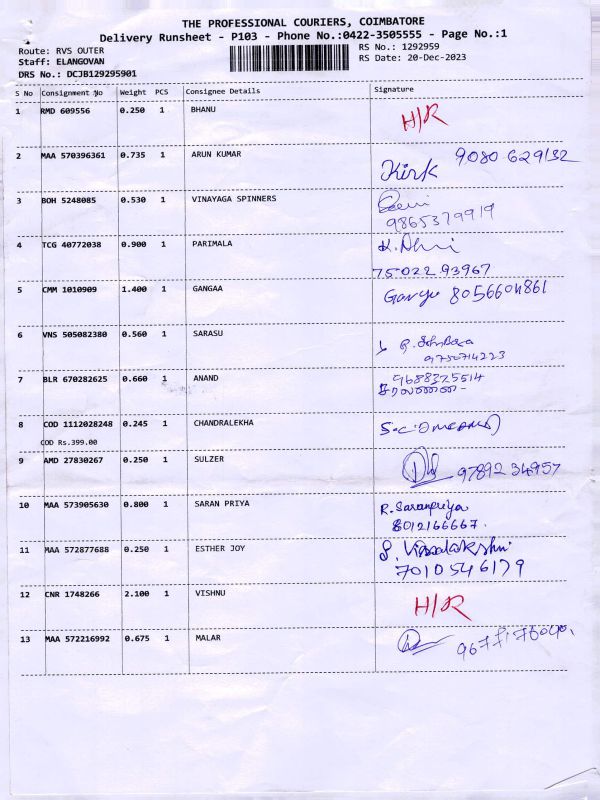 THE PROFESSIONAL COURIERS, COIMBATORE
Delivery Runsheet - P103 - Phone No.:0422-3505555 - Page No.:1
Route: RVS OUTER RS No.: 1292959
Staff: ELANGOVAN RS Date: 20-Dec-2023
DRS No.: DCJB129295901
S No Consignment No Weight PCS Consignee Details Signature
1 RMD 609556 0.250 1 BHANU H/R
2 MAA 570396361 0.735 1 ARUN KUMAR 9080 629132
3 BOH 5248085 0.530 1 VINAYAGA SPINNERS
9865379919
4 TCG 40772038 0.900 1 PARIMALA
75022 93967
5 CMM 1010909 1.400 1 GANGAA 8056604861
6 VNS 505082380 0.560 1 SARASU
9750714223
7 BLR 670282625 0.660 1 ANAND 9688325514
8 COD 1112028248 0.245 1 CHANDRALEKHA
COD Rs.399.00
9 AMD 27830267 0.250 1 SULZER 97892 34957
10 MAA 573905630 0.800 1 SARAN PRIYA R. Saranpriya
8012166667.
11 MAA 572877688 0.250 1 ESTHER JOY
7010546179
12 CNR 1748266 2.100 1 VISHNU H/R
13 MAA 572216992 0.675 1 MALAR